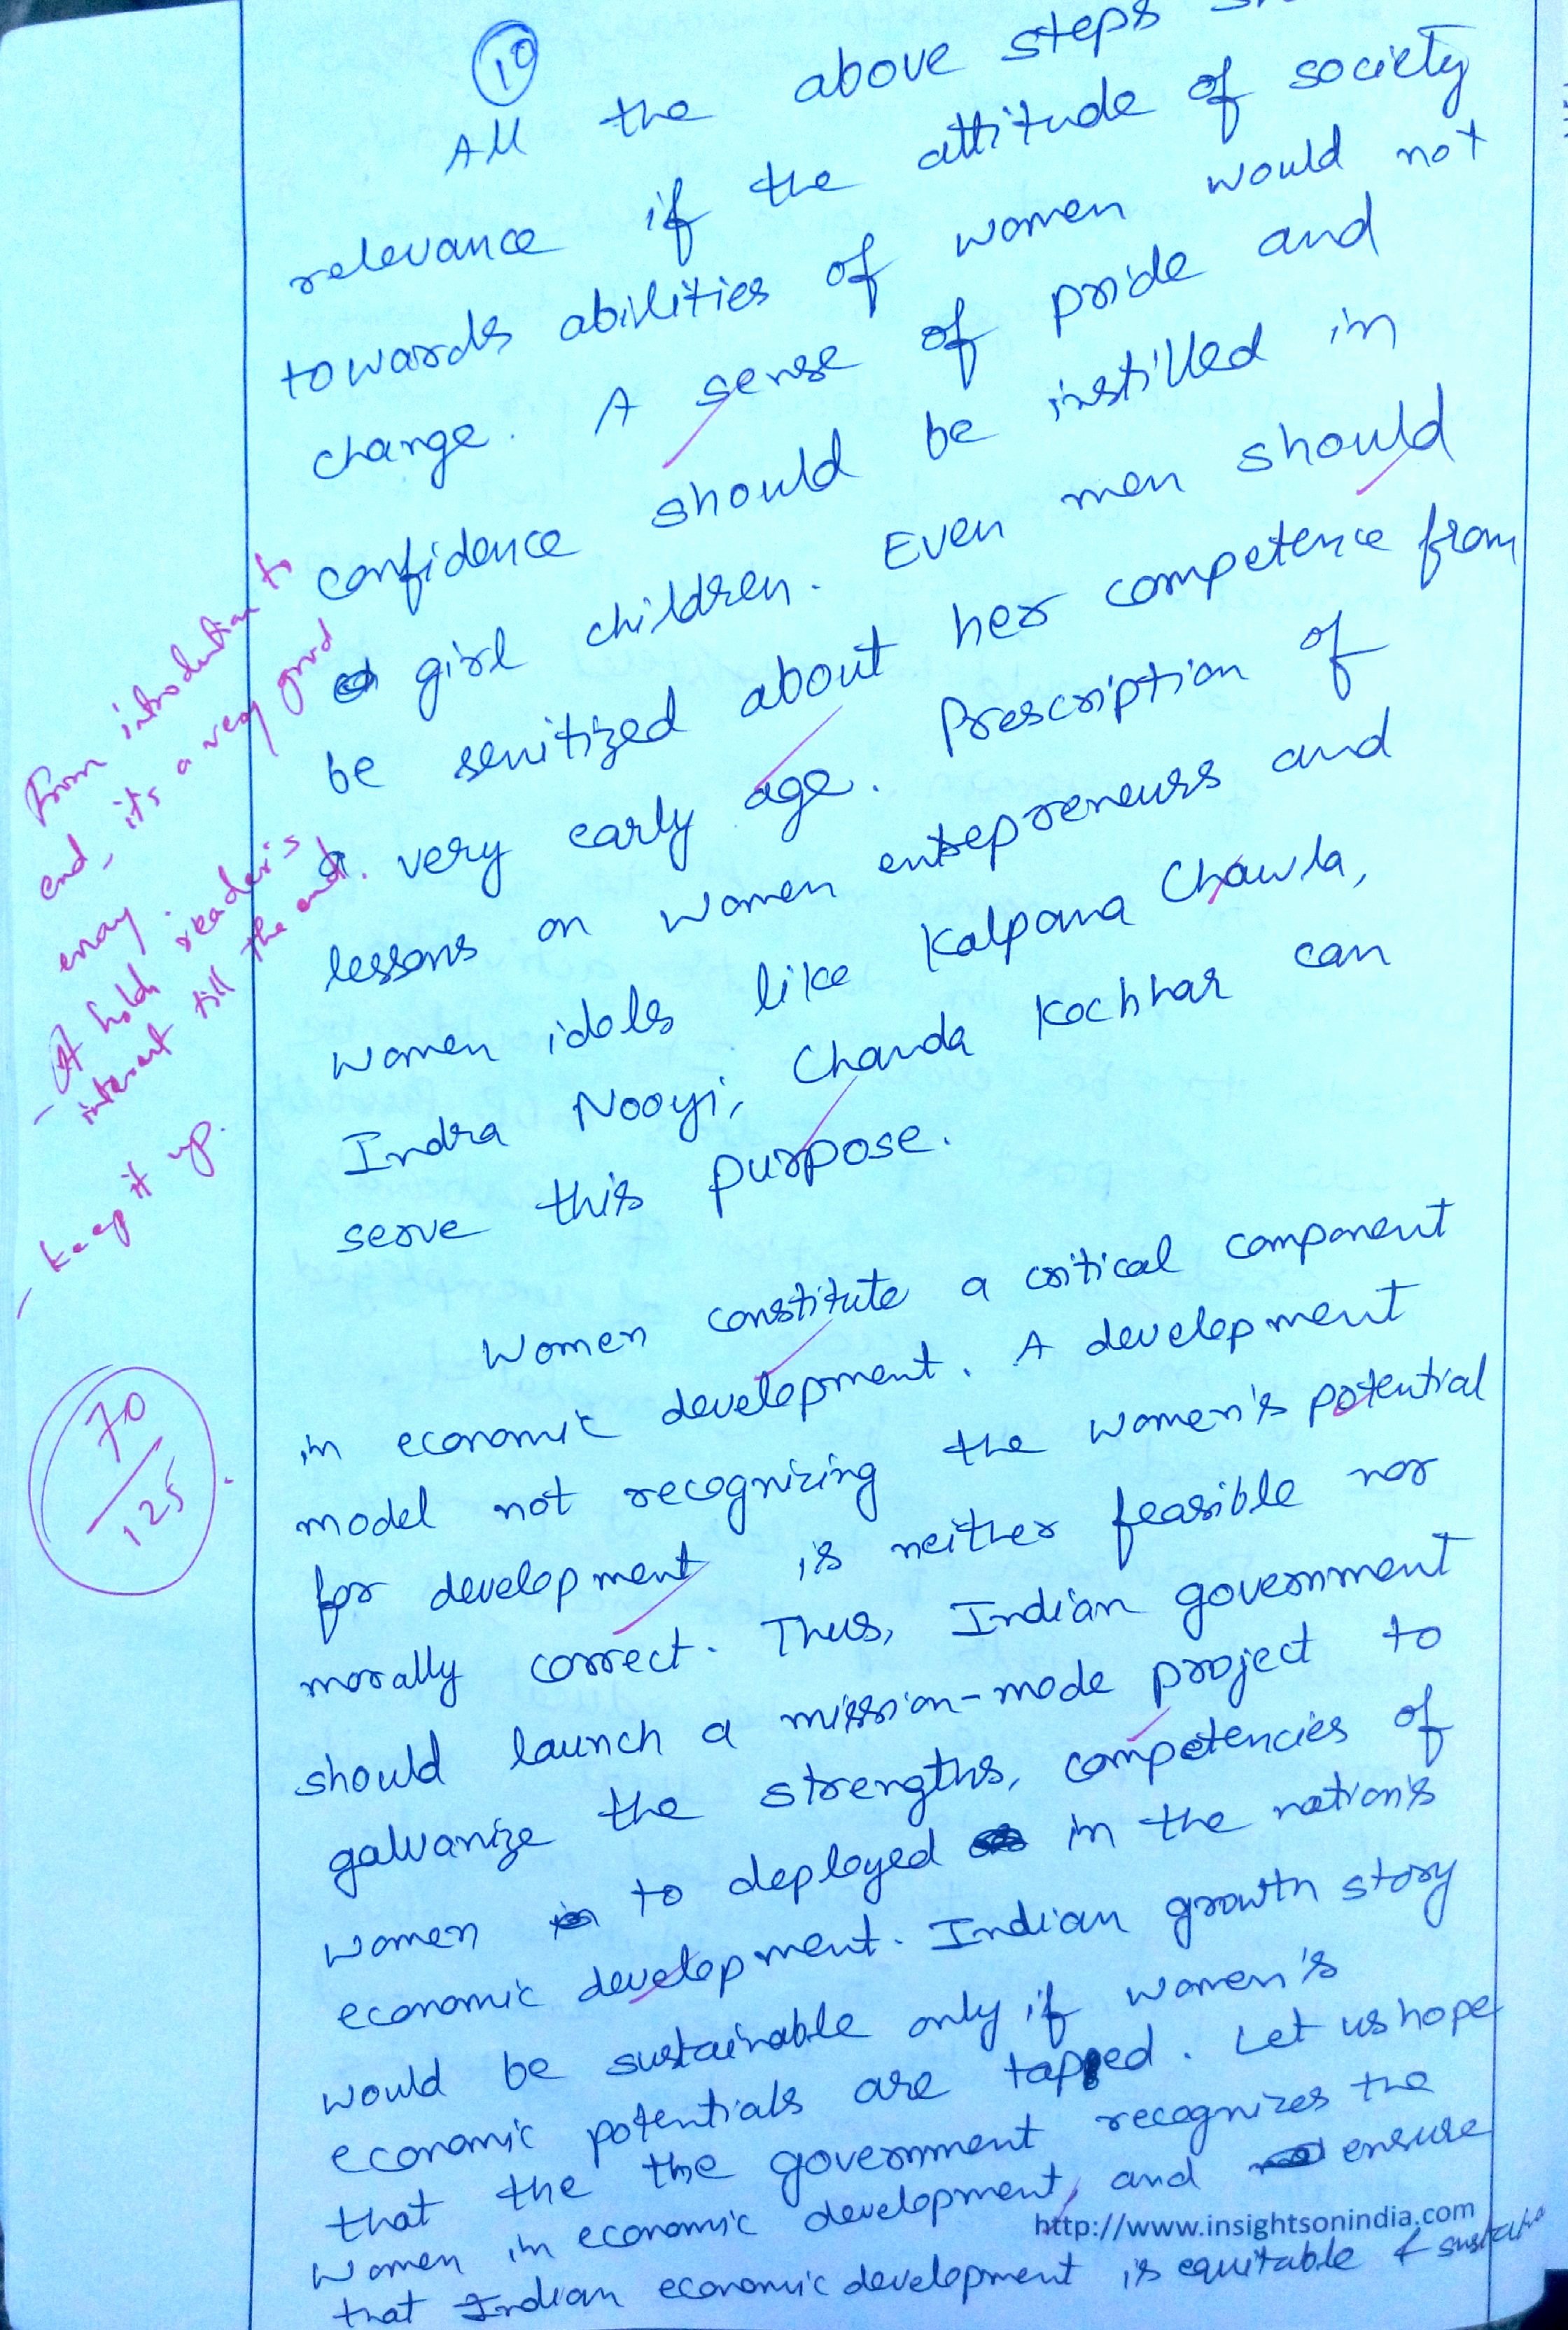 10
All the above steps
relevance if the attitude of society
towards abilities of women would not
change. A sense of pride and
confidence should be instilled in
girl children. Even men should
be senitized about her competence from
a very early age. Prescription of
lessons on women entrepreneurs and
women idols like Kalpana Chawla,
Indra Nooyi, Chanda Kochhar can
serve this purpose.
Women constitute a critical component
in economic development. A development
model not recognizing the women's potential
for development is neither feasible nor
morally correct. Thus, Indian government
should launch a mission-mode project to
galvanize the strengths, competencies of
women to deployed in the nation's
economic development. Indian growth story
would be sustainable only if women's
economic potentials are tapped. Let us hope
that the the government recognizes the
women in economic development, and ensure
that Indian economic development is equitable &
http://www.insightsonindia.com
From introduction to
end, it's a very good
essay
- It holds reader's
interest till the end.
- Keep it up.
70
125